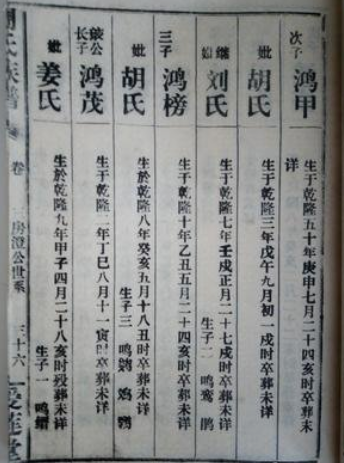 次子 鸿甲 生于乾隆五十年庚申七月二十四亥时卒葬未
详
妣 胡氏 生于乾隆三年戊午九月初一戌时卒葬未详
继 刘氏 生于乾隆七年壬戌正月二十七戌时卒葬未详
生子二 鸣鸾 鹃
三子 鸿榜 生于乾隆十年乙丑五月二十四亥时卒葬未详
妣 胡氏 生於乾隆八年癸亥五月十八丑时卒葬未详
生子三 鸣
公长子 鸿茂 生于乾隆二年丁巳八月十一寅时卒葬未详
妣 姜氏 生於乾隆九年甲子四月二十八亥时殁葬未详
生子一 鸣
氏族谱 卷 房澄公世系 三十六 堂